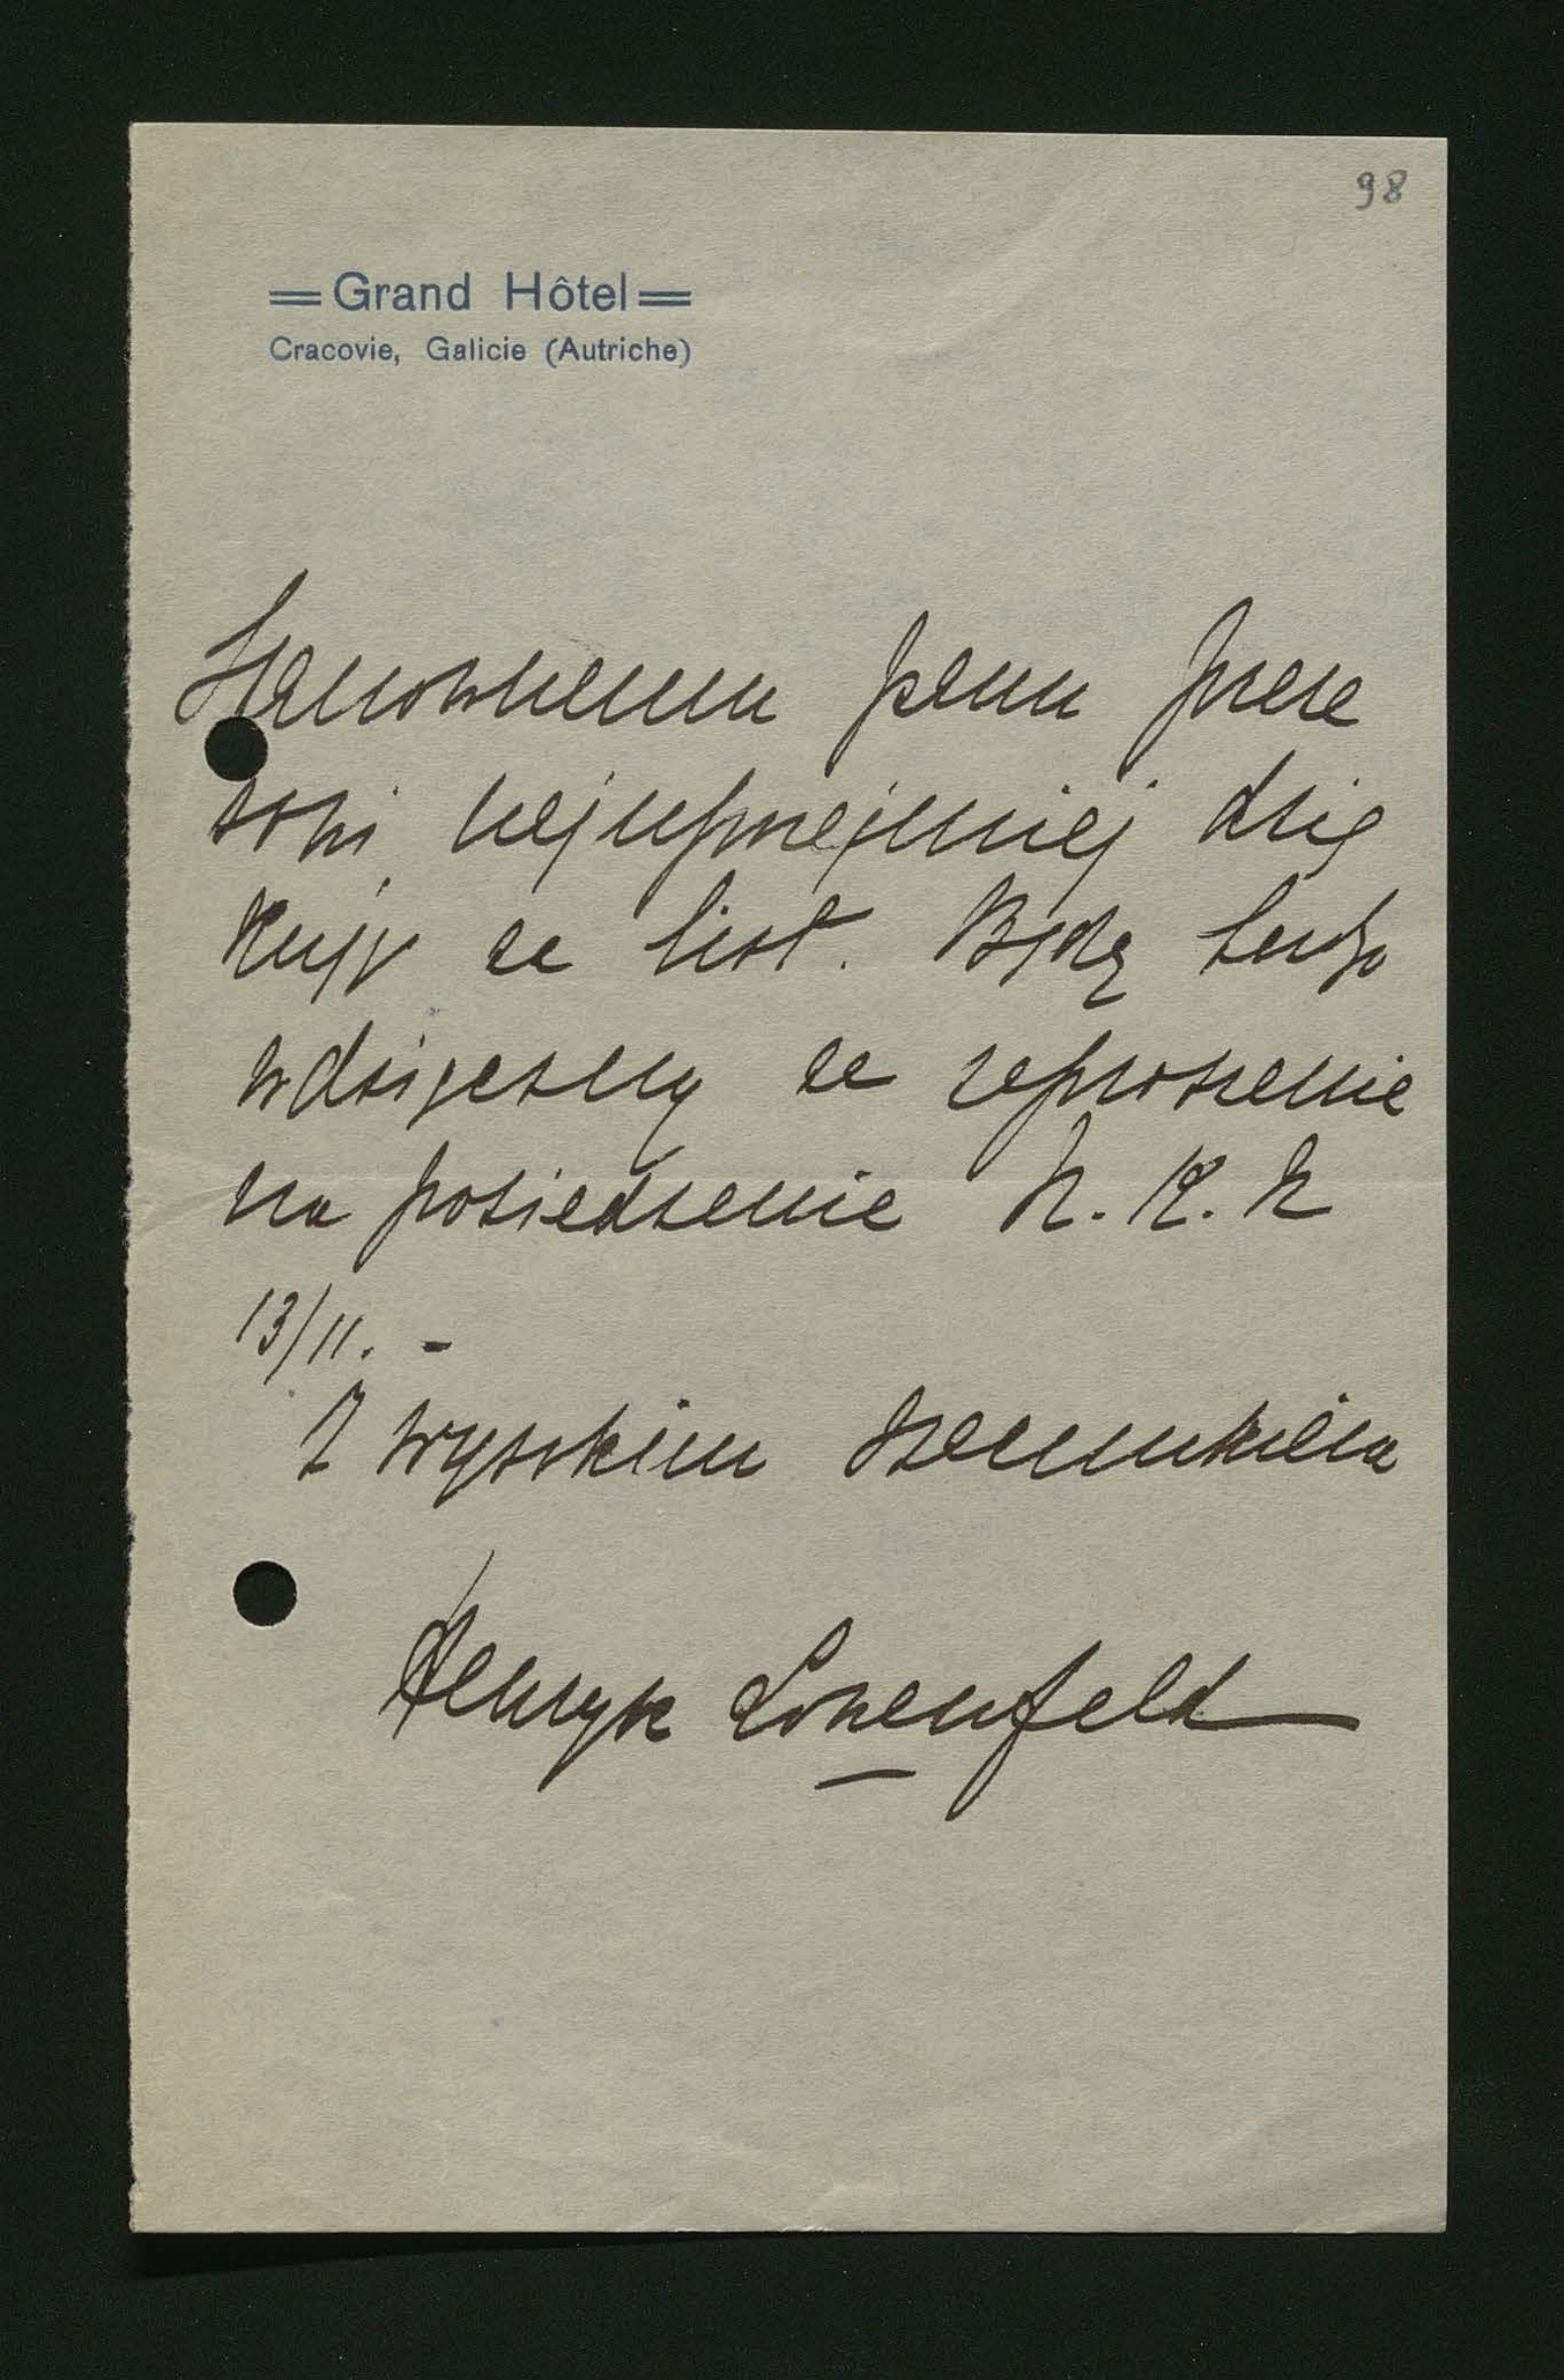 98
Grand Hôtel
Cracovie, Galicie (Autriche)
Szanownemu panu preze
sowi najuprzejmiej dzię
kuję za list. Będę bardzo
wdzięczny za zaproszenie
na posiedzenie N. K. N
13/11. -
Z wysokim szacunkiem
Henryk Lowenfeld